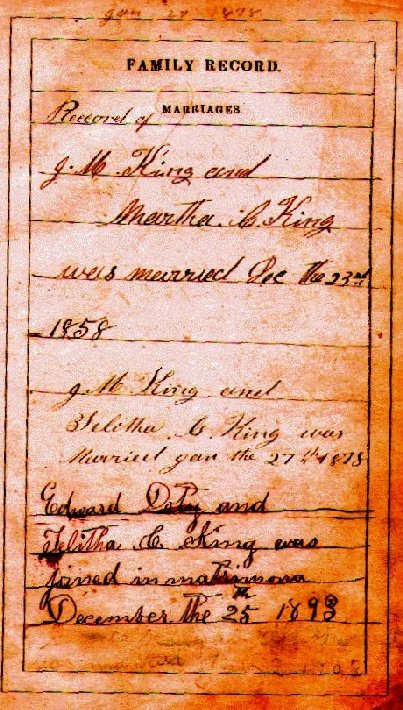 Jan 27 1878
FAMILY RECORD.
MARRIAGES
Record of
J. M. King and
Martha. C. King
was married Dec the 23rd
1858
J. M. King and
Telitha. C. King was
Married Jan the 27th 1878
Edward Doty and
Telitha C. King was
joined in matrimona
December the 25th 1893